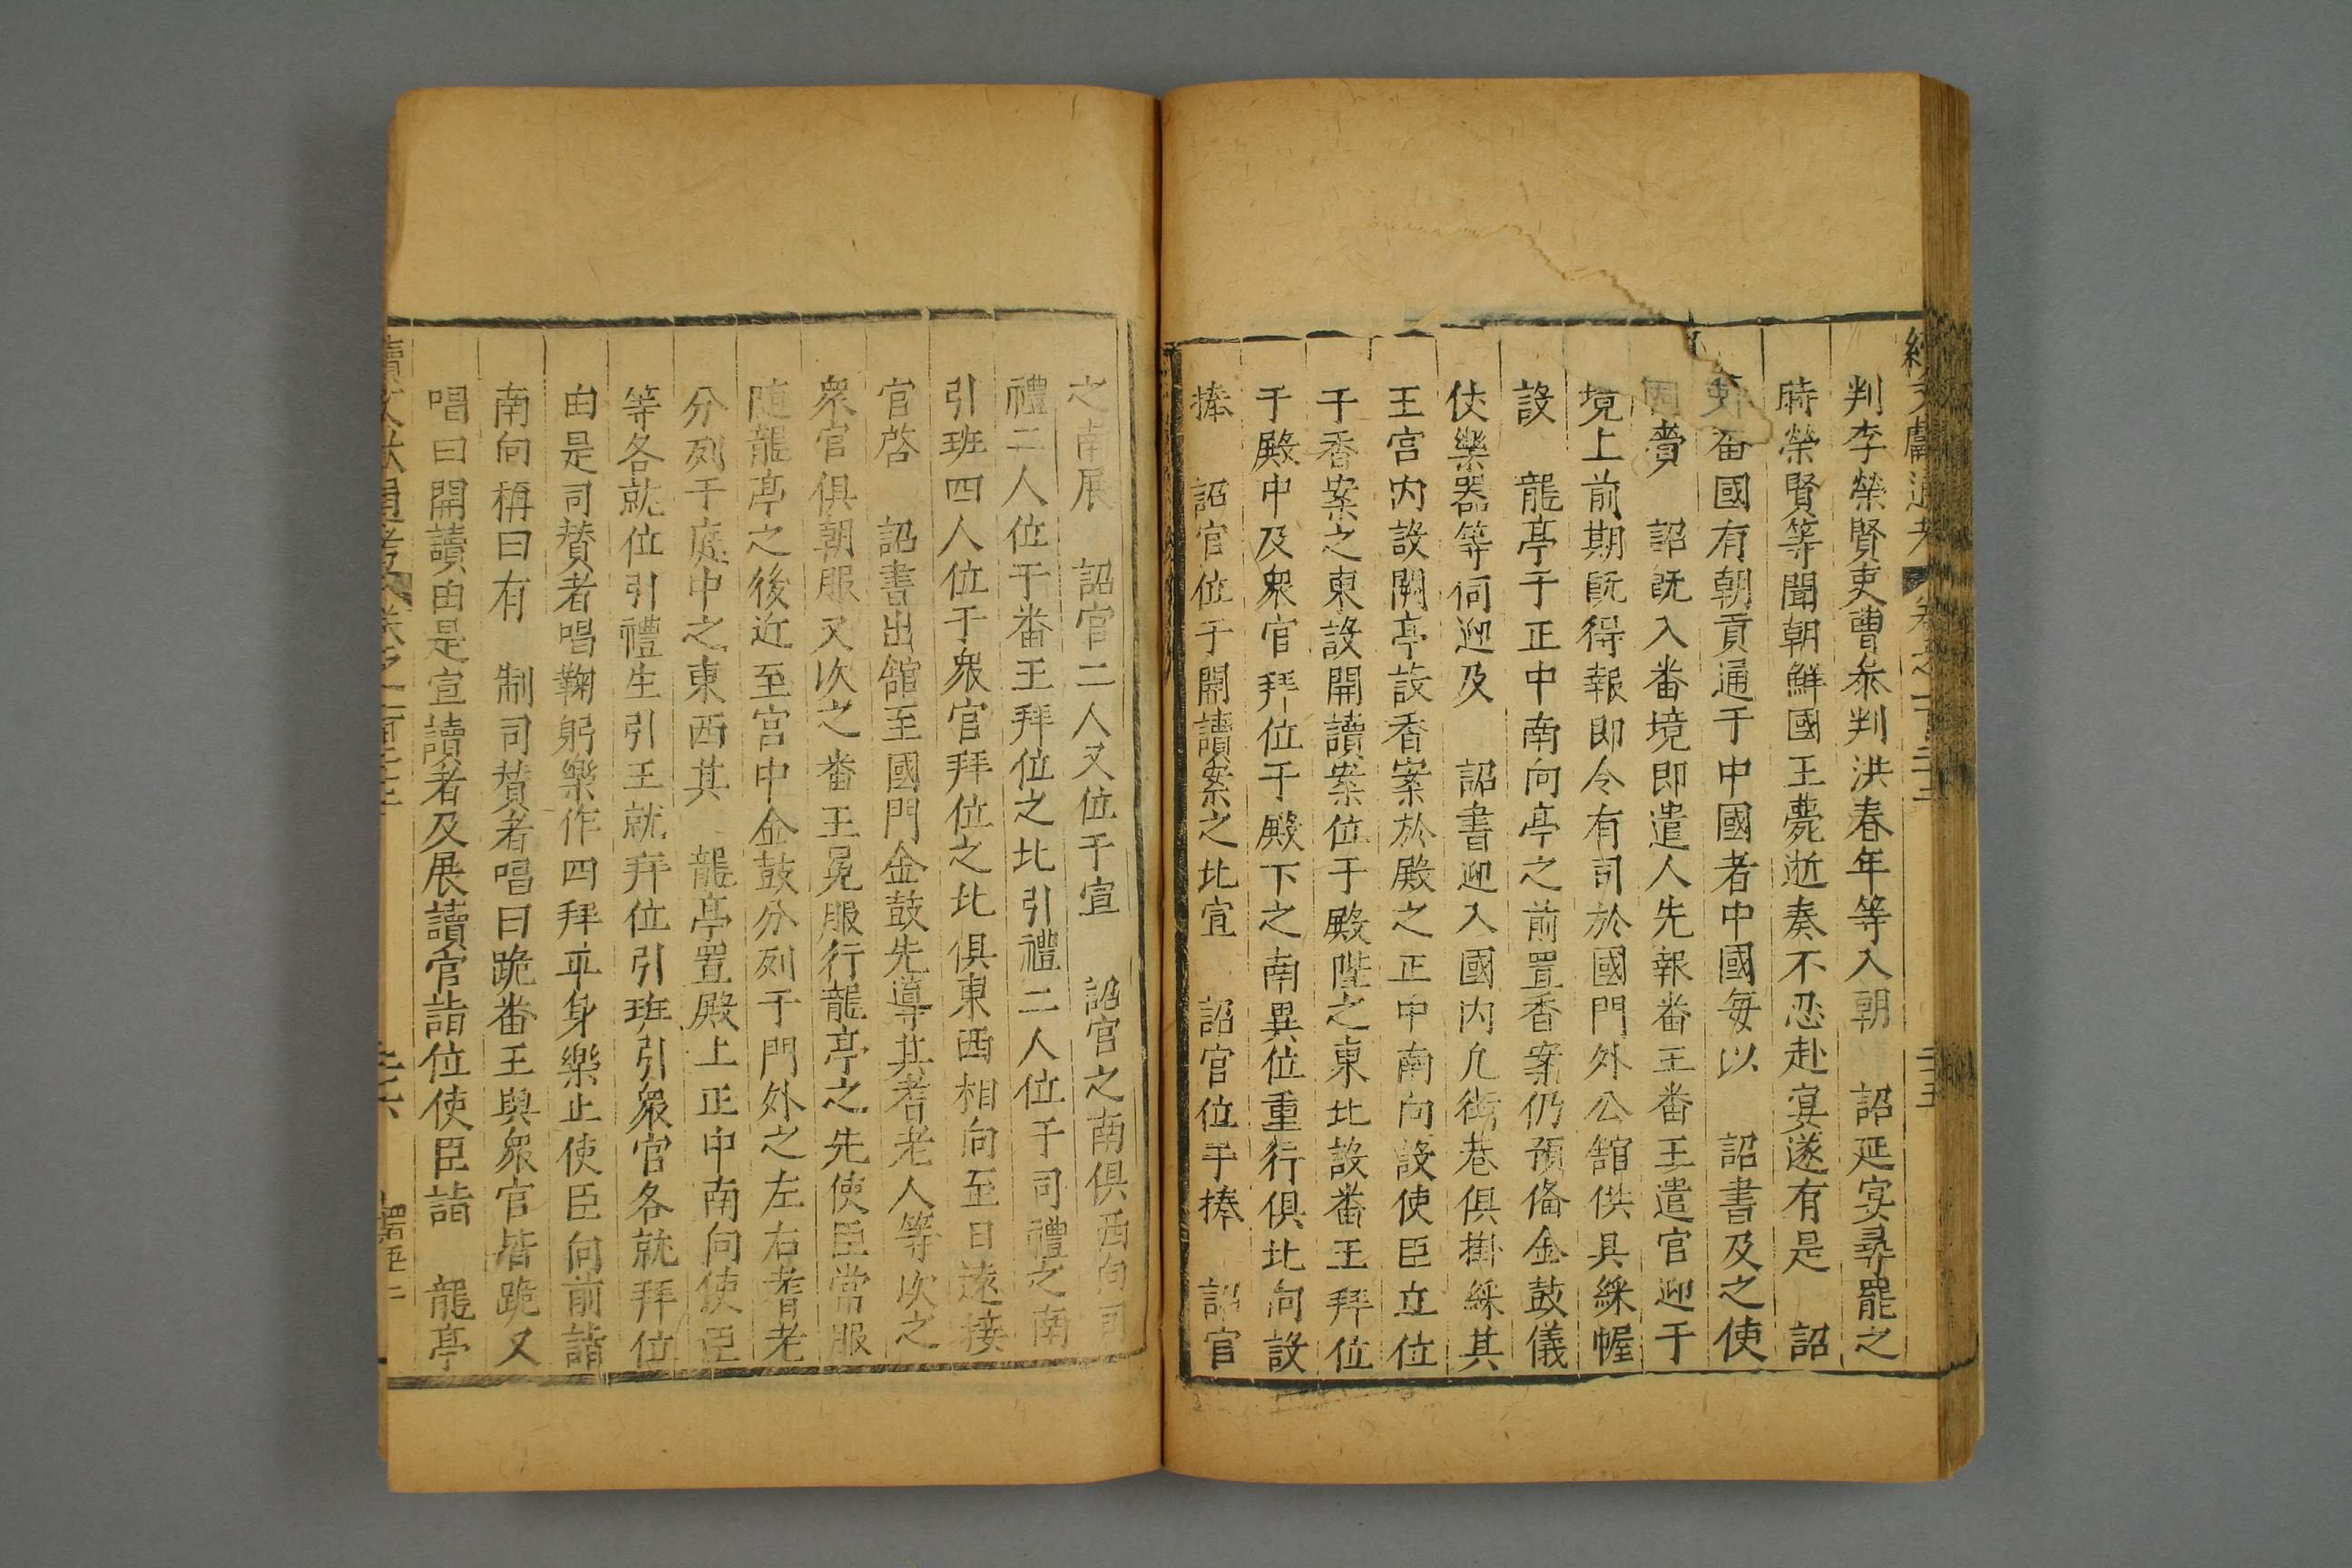 判李榮賢吏曹叅判洪春年等入朝 詔延宴尋罷之
時榮賢等聞朝鮮國王薨逝奏不忍赴宴遂有是 詔
畨國有朝貢通于中國者中國每以 詔書及之使
賫 詔旣入番境即遣人先報番王番王遣官迎于
境上前期旣得報即令有司於國門外公舘供具綵幄
設 龍亭于正中南向亭之前置香案仍預俻金鼓儀
仗樂器等伺迎及 詔書迎入國内凢街巷俱掛綵其
王宫内設闕亭設香案於殿之正中南向設使臣立位
于香案之東設開讀案位于殿陛之東北設番王拜位
于殿中及衆官拜位于殿下之南異位重行俱北向設
捧 詔官位于開讀案之北宣 詔官位于捧 詔官
之南展 詔官二人又位于宣 詔官之南俱西向司
禮二人位于番王拜位之北引禮二人位于司禮之南
引班四人位于衆官拜位之北俱東西相向至日遠接
官啓 詔書出舘至國門金鼓先導其耆老人等次之
衆官俱朝服又次之番王冕服行龍亭之先使臣常服
随龍亭之後近至宫中金鼓分列于門外之左右耆老
分列于庭中之東西其 龍亭置殿上正中南向使臣
等各就位引禮生引王就拜位引班引衆官各就拜位
由是司賛者唱鞠躬樂作四拜平身樂止使臣向前詣
南向稱曰有 制司賛者唱曰跪番王與衆官皆跪又
唱曰開讀由是宣讀者及展讀官詣位使臣詣 龍亭